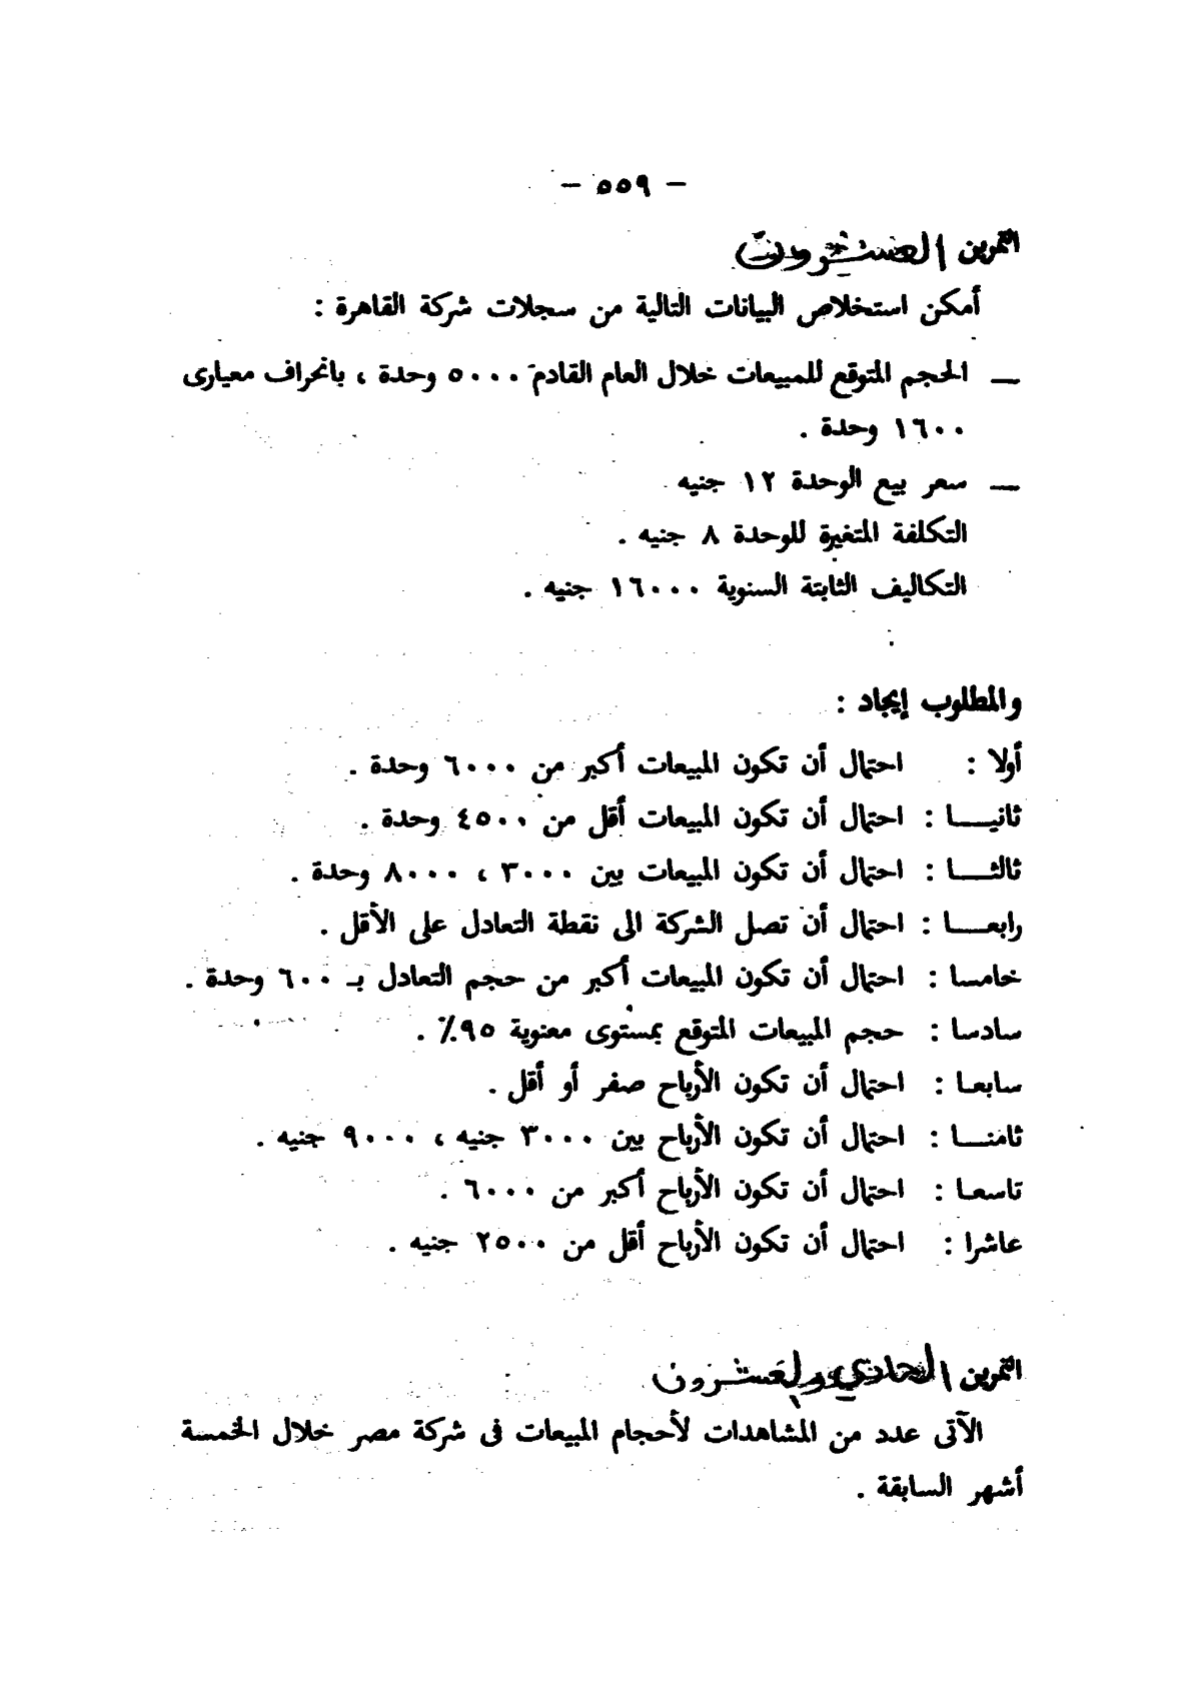 - ٥٥٩ -
التمرين العشرون
أمكن استخلاص البيانات التالية من سجلات شركة القاهرة :
— الحجم المتوقع للمبيعات خلال العام القادم ٥٠٠٠ وحدة ، بانحراف معيارى
١٦٠٠ وحدة .
— سعر بيع الوحدة ١٢ جنيه
التكلفة المتغيرة للوحدة ٨ جنيه .
التكاليف الثابتة السنوية ١٦٠٠٠ جنيه .
والمطلوب إيجاد :
أولا : احتمال أن تكون المبيعات أكبر من ٦٠٠٠ وحدة .
ثانيـــا : احتمال أن تكون المبيعات أقل من ٤٥٠٠ وحدة .
ثالثـــا : احتمال أن تكون المبيعات بين ٣٠٠٠ ، ٨٠٠٠ وحدة .
رابعـــا : احتمال أن تصل الشركة الى نقطة التعادل على الأقل .
خامسا : احتمال أن تكون المبيعات أكبر من حجم التعادل بـ ٦٠٠ وحدة .
سادسا : حجم المبيعات المتوقع بمستوى معنوية ٩٥٪ .
سابعـا : احتمال أن تكون الأرباح صفر أو أقل .
ثامنـــا : احتمال أن تكون الأرباح بين ٣٠٠٠ جنيه ، ٩٠٠٠ جنيه .
تاسعـا : احتمال أن تكون الأرباح أكبر من ٦٠٠٠ .
عاشرا : احتمال أن تكون الأرباح أقل من ٢٥٠٠ جنيه .
التمرين الحادي والعشرون
الآتى عدد من المشاهدات لأحجام المبيعات فى شركة مصر خلال الخمسة
أشهر السابقة .